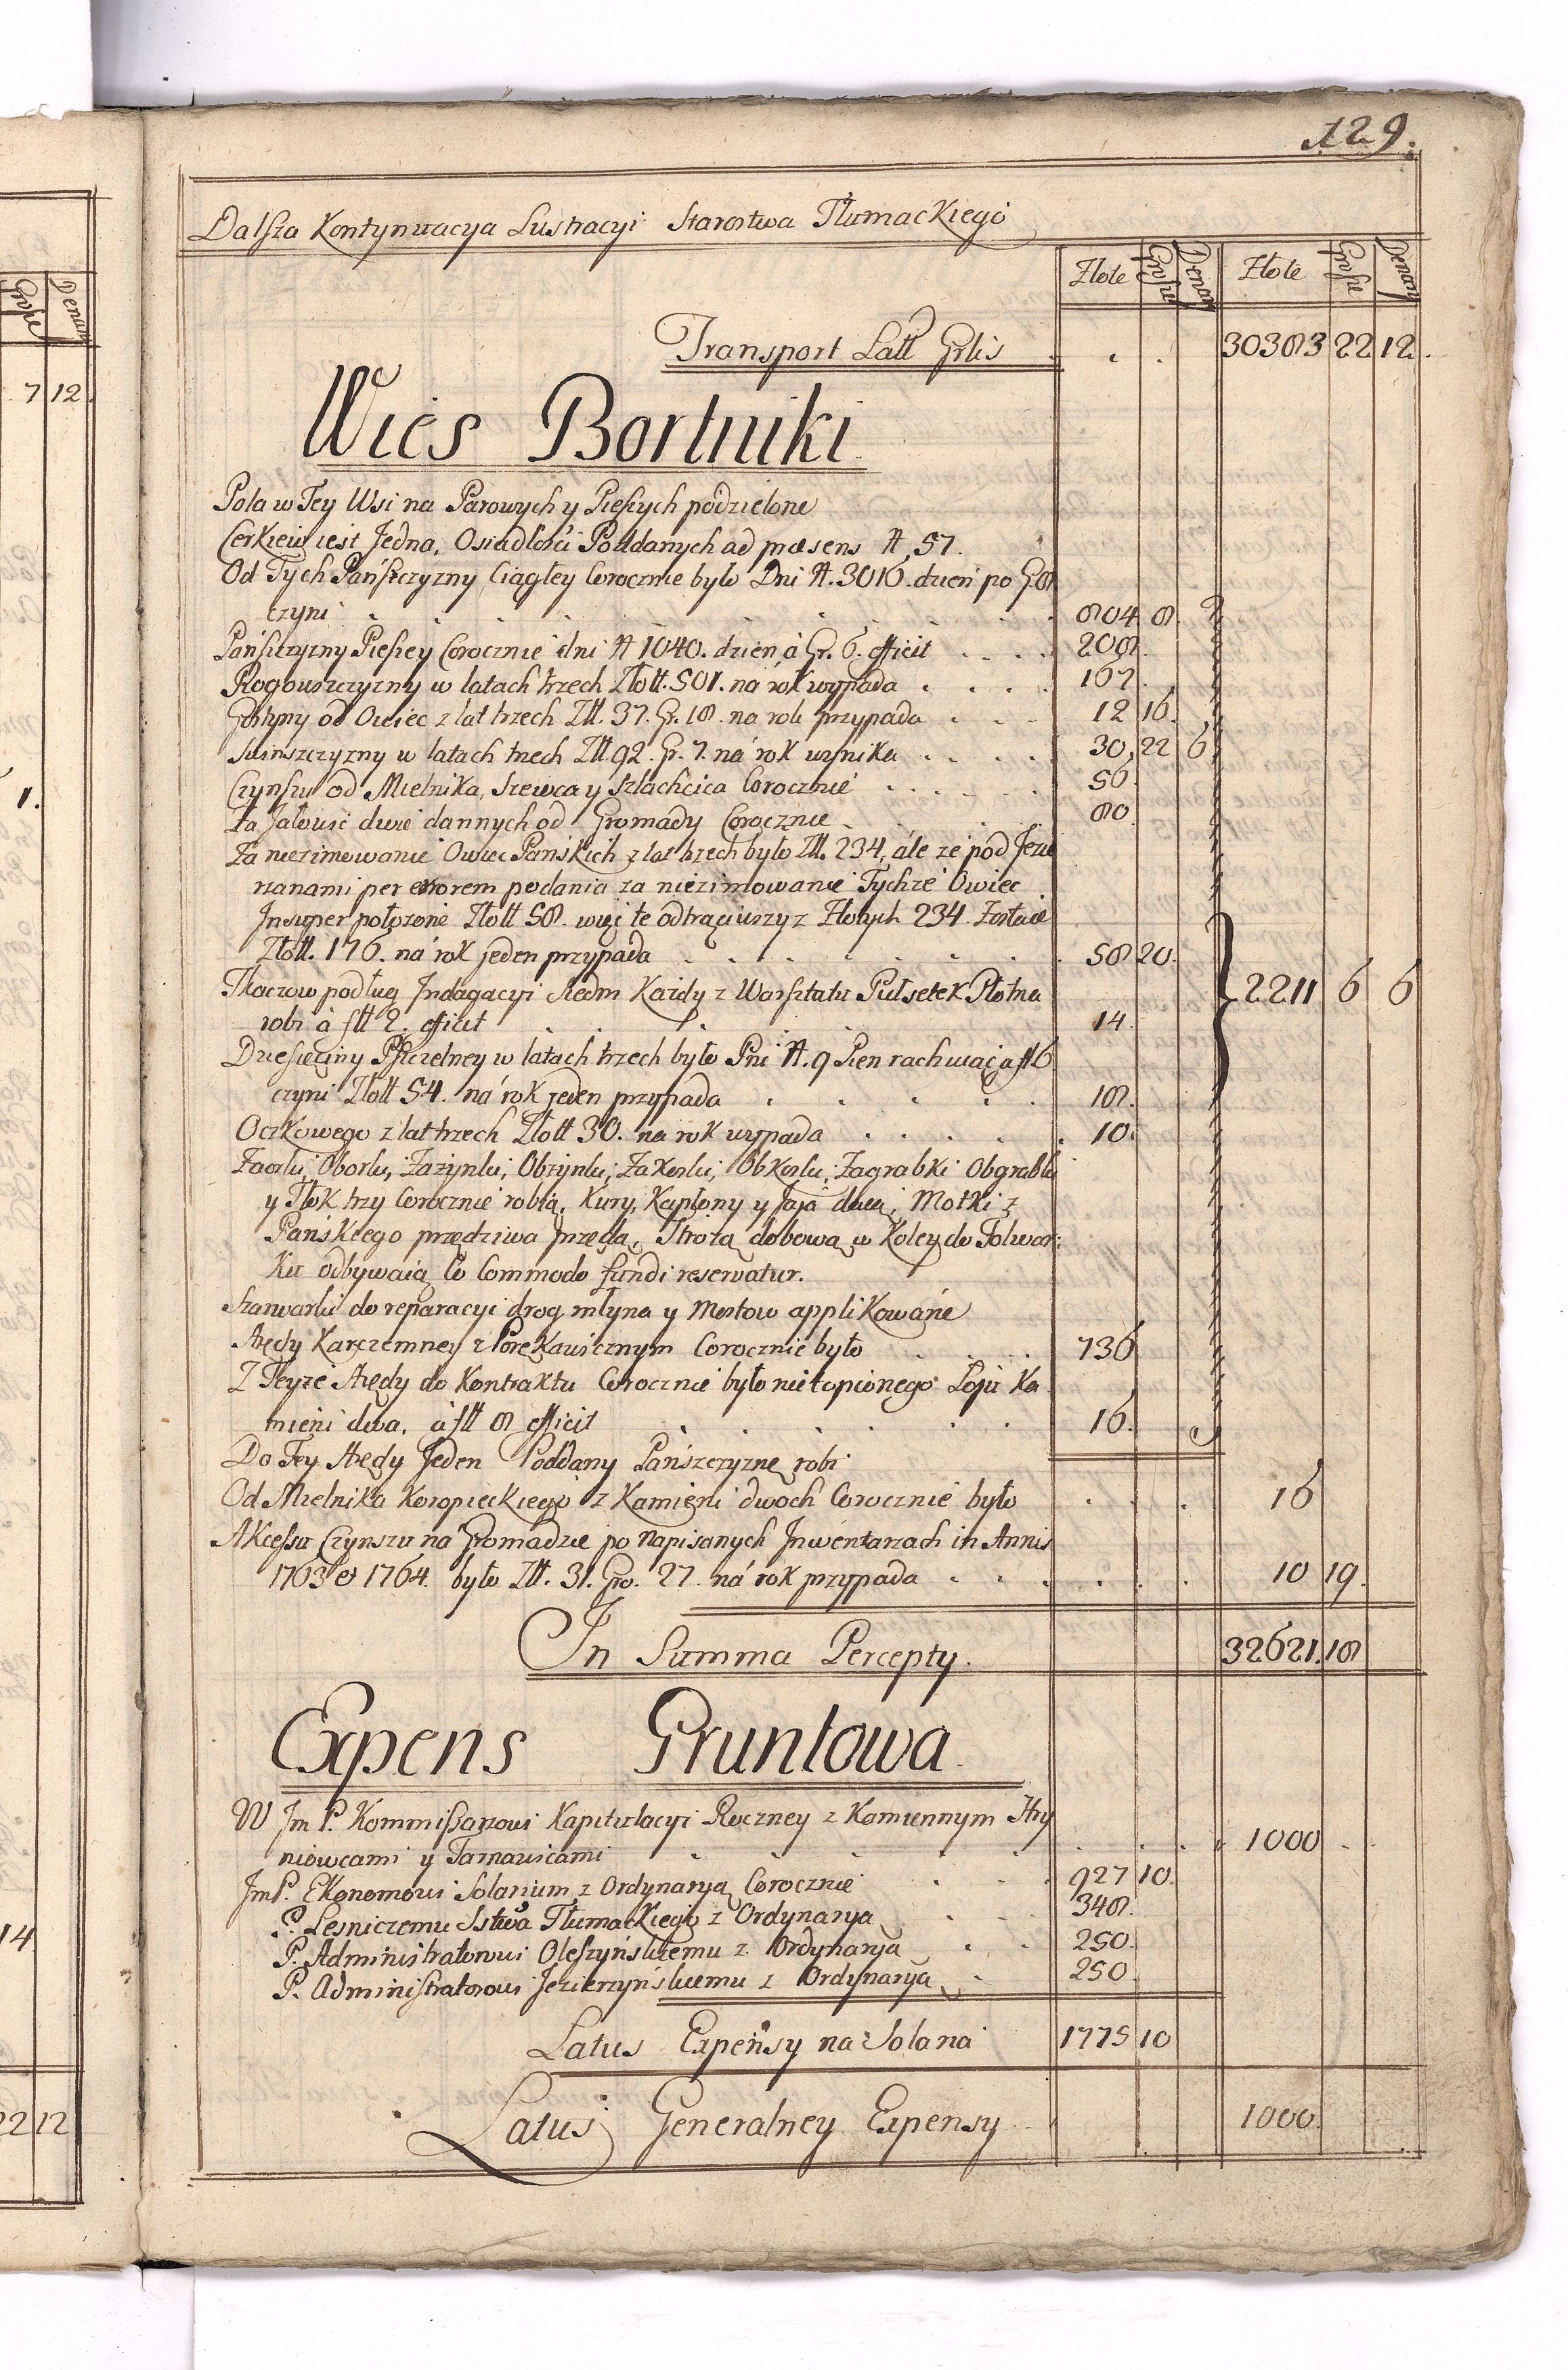 129.
Dalsza Kontynuacya Lustracyi Starostwa Tłumackiego
Złote Grosze Denary Złote Grosze Denary
Transport Latt Grlis . . 30383 22 12.
Wies Bortniki
Pola w Tey Wsi na Parowych y Pieszych podzielone
Cerkiew iest Jedna, Osiadłości Poddanych ad præsens # 57.
Od Tych Pańszczyzny Ciągłey Corocznie było Dni #. 3016. dzień po Gr 8
czyni . . . 804. 8.
Pańszczyzny Pieszey Corocznie dni # 1040. dzien á Gr. 6. efficit . . . 208.
Rogouszczyzny w latach trzech Złott. 501. na rok wypada . . . 167.
od Owiec z lat trzech Złt. 37. Gr. 18. na rok przypada . . . 12 16.
Swinszczyzny w latach trzech Złt. 92. Gr. 7. na rok wynika . . . 30, 22 6
Czynszu od Mielnika, Szewca y Szlachcica Corocznie . . . 56.
Za Jałowic dwie dannych od Gromady Corocznie . . . 80
Za niezimowanie Owiec Pańskich z lat trzech było Złt. 234, ále że pod Jezie
rzanami per errorem podania za niezimowanie Tychże Owiec
Insuper położone Złott 58. więc te odtrąciwszy z Złotych 234. Zostaie
Złott. 176. na rok jeden przypada . . . 58 20.
Tkaczow podług Indagacyi Siedm Każdy z Warsztatu Pułsetek Płotna 2211 6 6
robi á fll 2. efficit . . . 14.
Dziesięciny Pszczelney w latach trzech było Pni #. 9 Pien rachuiąc á fll 6
czyni Złott 54. na rok jeden przypada . . . 18.
Oczkowego z lat trzech Złott 30. na rok wypada . . . 10.
Zaorki, Oborki, Zażynki, Obżynki, Zakoski, Obkoski, Zagrabki Obgrabki
y Tłok trzy Corocznie robią, Kury, Kapłony y Jaja daią, Motki z
Pańskiego przędziwa przędą, Strożą dobową w Koley do Folwar:
ku odbywaią Co Commodo fundi reservatur.
Szarwarki do reparacyi drog młyna y Mostow applikowane
Arędy Karczemney z Corocznie było . . . 736
Z Teyże Arędy do Kontraktu Corocznie było nietopionego Łoju Ka
mieni dwa. á fll 8 efficit . . . 16.
Do Tey Arędy Jeden Poddany Pańszczyznę robi
Od Mielnika Koropieckiego z Kamieni dwoch Corocznie było . . . 16
Akcessu Czynszu na Gromadzie po napisanych Inwentarzach in Annis
1763 et 1764. było Złt. 31. Gro. 27. na rok przypada . . . 10 19.
In Summa Percepty. 32621. 18
Expens Gruntowa
W Jm P. Kommissarzowi Kapitulacyi Roczney z Kamiennym Hry
niowcami y Tarnawicami . . . 1000
Jm P. Ekonomowi Solarium z Ordynaryą Corocznie . . . 927 10.
P. Lesniczemu Sstwa Tłumackiego z Ordynaryą . . . 348.
P. Administratorowi Oleszyńskiemu z Ordynaryą . . . 250.
P. Administratorowi Jezierzyńskiemu z Ordynaryą . . . 250.
Latus Expensy na Solaria 1775 10
Latus Generalney Expensy 1000.
Grosze Denary
7 12.
1.
14
22 12